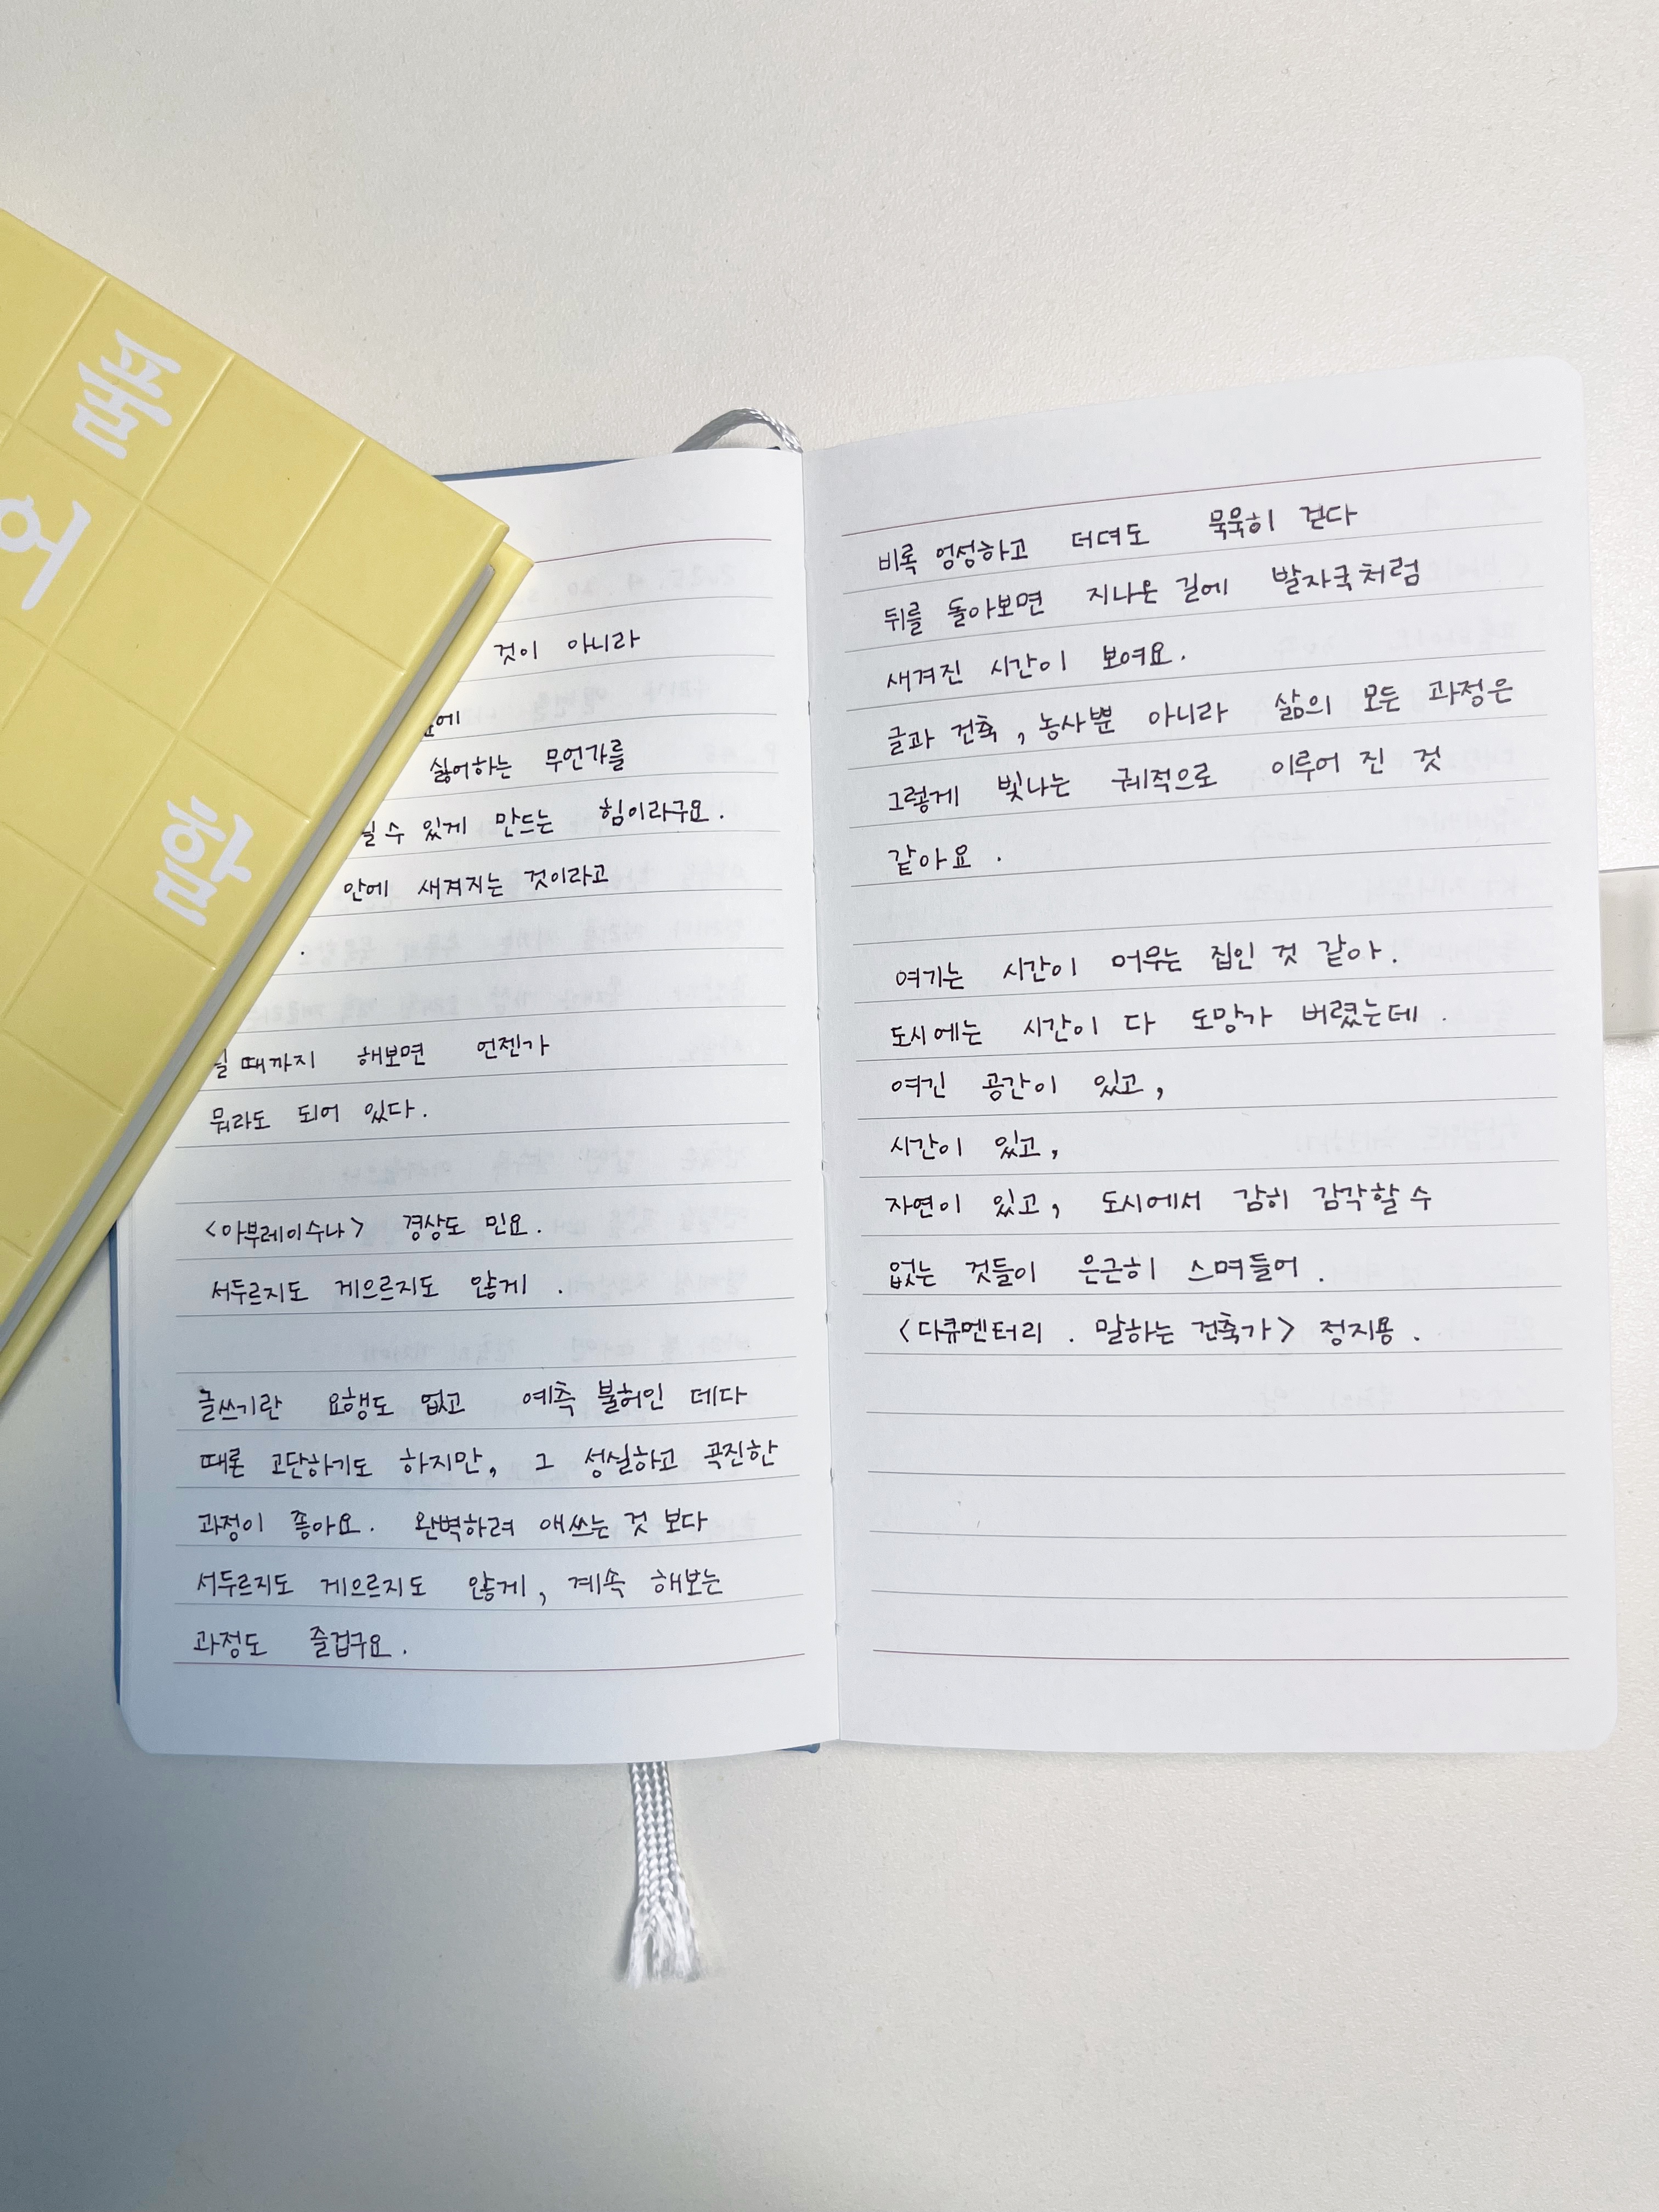 품
어
함
것이 아니라
에
싫어하는 무언가를
수 있게 만드는 힘이라구요.
안에 새겨지는 것이라고
때까지 해보면 언젠가
뭐라도 되어 있다.
<아부레이수나> 경상도 민요.
서두르지도 게으르지도 않게.
글쓰기란 요행도 없고 예측 불허인 데다
때론 고단하기도 하지만, 그 성실하고 곡진한
과정이 좋아요. 완벽하려 애쓰는 것 보다
서두르지도 게으르지도 않게, 계속 해보는
과정도 즐겁구요.
비록 엉성하고 더뎌도 묵묵히 걷다
뒤를 돌아보면 지나온 길에 발자국처럼
새겨진 시간이 보여요.
글과 건축, 농사뿐 아니라 삶의 모든 과정은
그렇게 빛나는 궤적으로 이루어 진 것
같아요.
여기는 시간이 머무는 집인 것 같아.
도시에는 시간이 다 도망가 버렸는데.
여긴 공간이 있고,
시간이 있고,
자연이 있고, 도시에서 감히 감각할 수
없는 것들이 은근히 스며들어.
<다큐멘터리. 말하는 건축가> 정지용.